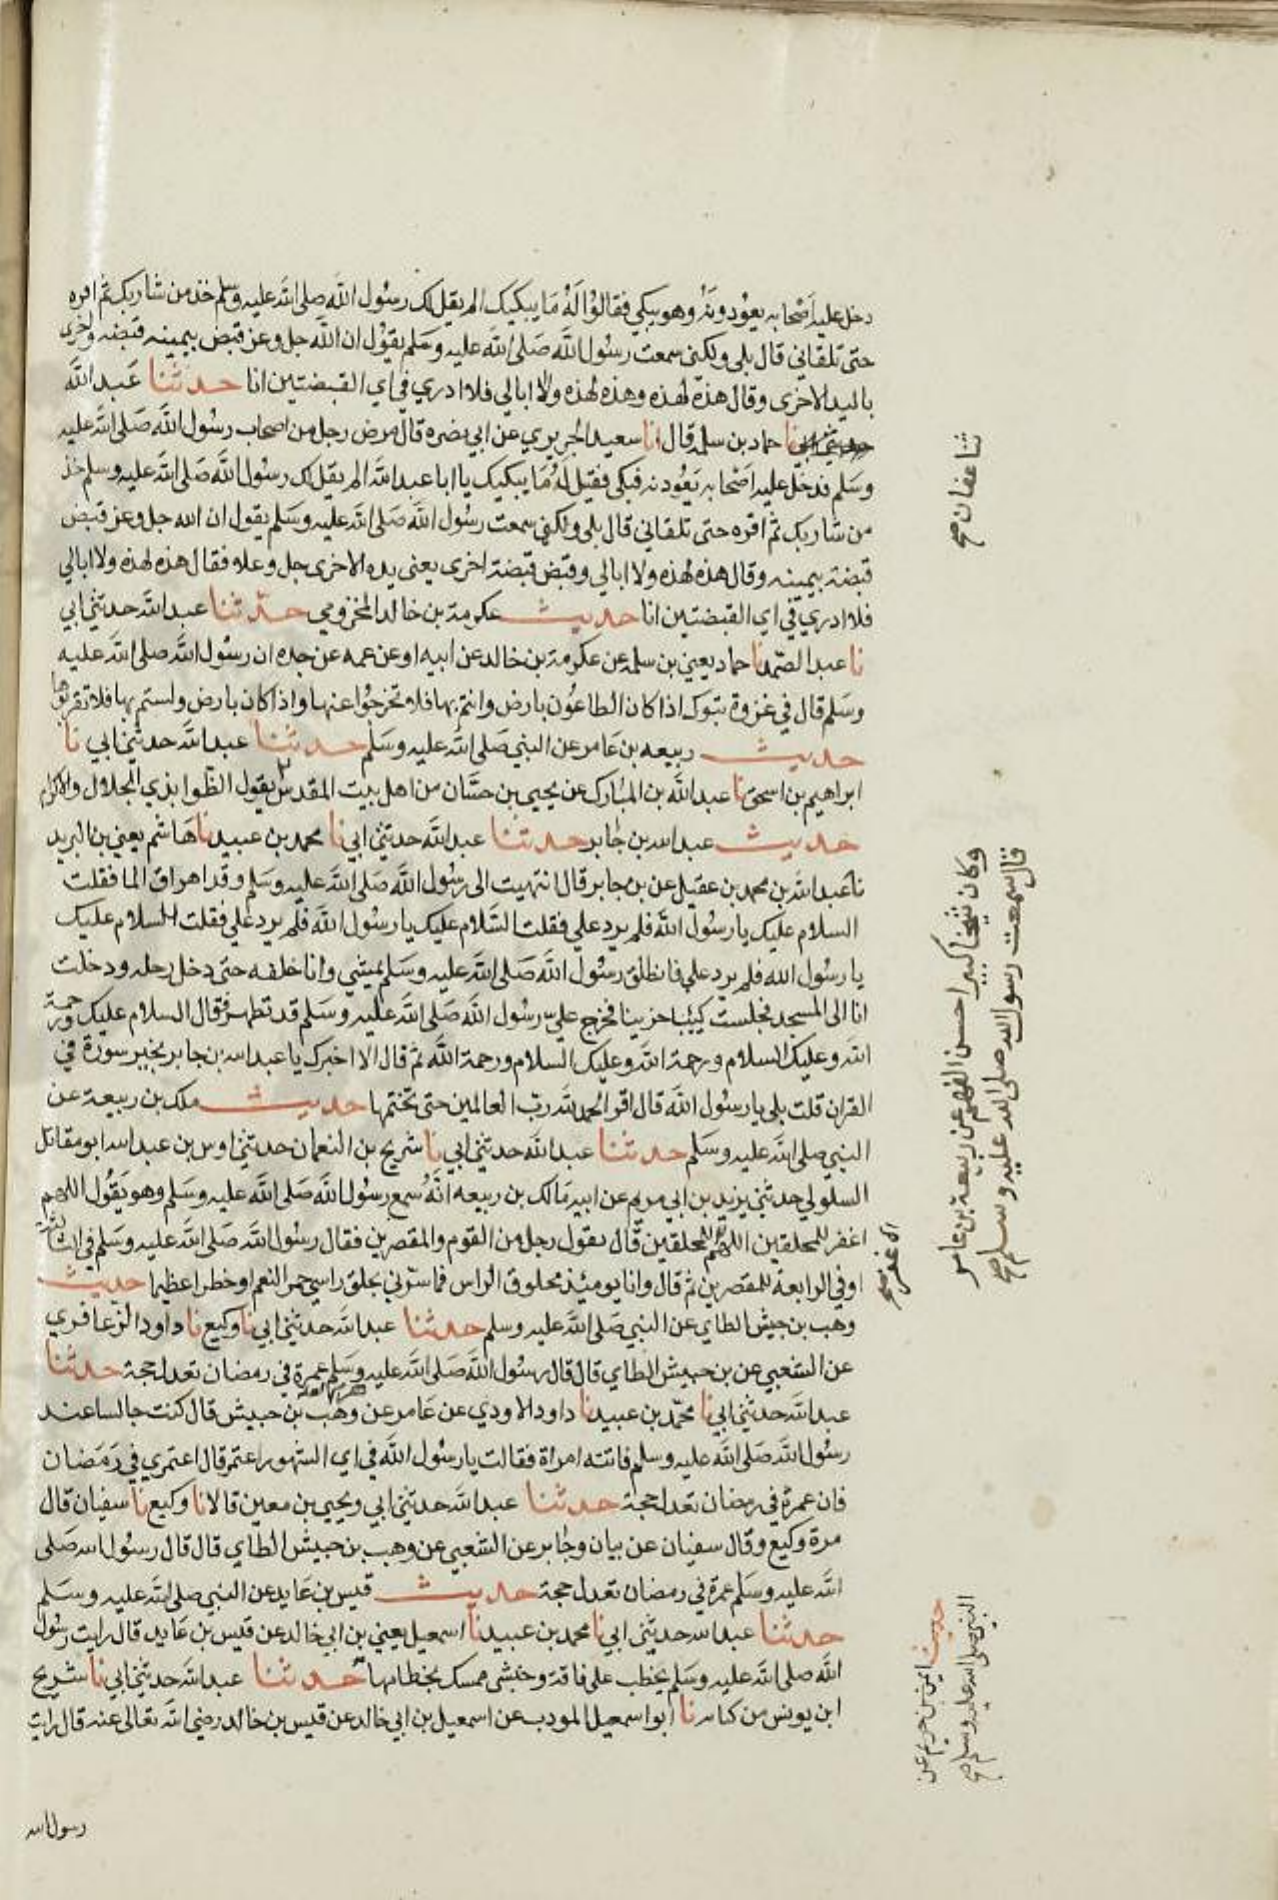 دخل عليه اصحابه يعودونه وهو يبكي فقالوا له ما يبكيك الم يقل لك رسول الله صلى الله عليه وسلم خذ من شاربك ثم اقره
حتى تلقاني قال بلى ولكني سمعت رسول الله صلى الله عليه وسلم يقول ان الله جل وعز قبض بيمينه قبضه واخرى
باليد الاخرى وقال هذه لهذه وهذه لهذه ولا ابالي فلا ادري في اي القبضتين انا حدثنا عبد الله
حدثني ابي نا حماد بن سلمه قال انا سعيد الجريري عن ابي نضره قال مرض رجل من اصحاب رسول الله صلى الله عليه
وسلم فدخل عليه اصحابه يعودنه فبكى فقيل له ما يبكيك يا ابا عبد الله الم يقل لك رسول الله صلى الله عليه وسلم خذ
من شاربك ثم اقره حتى تلقاني قال بلى ولكني سمعت رسول الله صلى الله عليه وسلم يقول ان الله جل وعز قبض
قبضة بيمينه وقال هذه لهذه ولا ابالي وقبض قبضة اخرى يعني بيده الاخرى جل وعلا فقال هذه لهذه ولا ابالي
فلا ادري في اي القبضتين انا حديث عكرمة بن خالد المخزومي حدثنا عبد الله حدثني ابي
نا عبد الصمد نا حماد يعني بن سلمه عن عكرمة بن خالد عن ابيه او عن عمه عن جده ان رسول الله صلى الله عليه
وسلم قال في غزوة تبوك اذا كان الطاعون بارض وانتم بها فلا تخرجوا عنها واذا كان بارض ولستم بها فلا تقربوها
حديث ربيعه بن عامر عن النبي صلى الله عليه وسلم حدثنا عبد الله حدثني ابي نا
ابراهيم بن اسحق نا عبد الله بن المبارك عن يحيى بن حسان من اهل بيت المقدس يقول الظوا بذي الجلال والاكرام
حديث عبد الله بن جابر حدثنا عبد الله حدثني ابي نا محمد بن عبيد نا هاشم يعني بن البريد
نا عبد الله بن محمد بن عقيل عن بن جابر قال انتهيت الى رسول الله صلى الله عليه وسلم وقد اهراق الما فقلت
السلام عليك يا رسول الله فلم يرد علي فقلت السلام عليك يا رسول الله فلم يرد علي فقلت السلام عليك
يا رسول الله فلم يرد علي فانطلق رسول الله صلى الله عليه وسلم يمشي وانا خلفه حتى دخل رحله ودخلت
انا الى المسجد فجلست كئيبا حزينا فخرج علي رسول الله صلى الله عليه وسلم قد تطهر فقال السلام عليك ورحمة
الله وعليك السلام ورحمة الله وعليك السلام ورحمة الله ثم قال الا اخبرك يا عبد الله بن جابر بخير سورة في
القران قلت بلى يا رسول الله قال اقرا الحمد لله رب العالمين حتى تختمها حديث ملك بن ربيعة عن
النبي صلى الله عليه وسلم حدثنا عبد الله حدثني ابي نا شريح بن النعمان حدثني اوس بن عبد الله ابو مقاتل
السلولي حدثني يزيد بن ابي مريم عن ابيه مالك بن ربيعه انه سمع رسول الله صلى الله عليه وسلم وهو يقول اللهم
اغفر للمحلقين اللهم للمحلقين قال يقول رجل من القوم والمقصرين فقال رسول الله صلى الله عليه وسلم في الثالثة
او في الرابعة للمقصرين ثم قال وانا يومئذ محلوق الراس فما سرني بحلق راسي حمر النعم او خطرا عظيما حديث
وهب بن حبش الطاي عن النبي صلى الله عليه وسلم حدثنا عبد الله حدثني ابي نا وكيع نا داود الزعافري
عن الشعبي عن بن حبيش الطاي قال قال رسول الله صلى الله عليه وسلم عمرة في رمضان تعدل حجة حدثنا
عبد الله حدثني ابي نا محمد بن عبيد نا داود الاودي عن عامر عن وهب بن حبيش قال كنت جالسا عند
رسول الله صلى الله عليه وسلم فاتته امراة فقالت يا رسول الله في اي الشهور اعتمر قال اعتمري في رمضان
فان عمرة في رمضان تعدل حجة حدثنا عبد الله حدثني ابي ويحيى بن معين قالا نا وكيع نا سفيان قال
مرة وكيع وقال سفيان عن بيان وجابر عن الشعبي عن وهب بن حبيش الطاي قال قال رسول الله صلى
الله عليه وسلم عمرة في رمضان تعدل حجة حديث قيس بن عايد عن النبي صلى الله عليه وسلم
حدثنا عبد الله حدثني ابي نا محمد بن عبيد نا اسمعيل يعني بن ابي خالد عن قيس بن عايد قال رايت رسول
الله صلى الله عليه وسلم يخطب على ناقة وحبشي ممسك بخطامها حدثنا عبد الله حدثني ابي نا شريح
ابن يونس من كتابه نا ابو اسمعيل المودب عن اسمعيل بن ابي خالد عن قيس بن خالد رضي الله تعالى عنه قال رايت
رسول الله
ثنا عفان صح
وكان شيخا كبيرا حسن الفهم عن ربيعة بن عامر
قال سمعت رسول الله صلى الله عليه وسلم صح
اغفر صح
حديث ايمن بن خريم عن
النبي صلى الله عليه وسلم صح